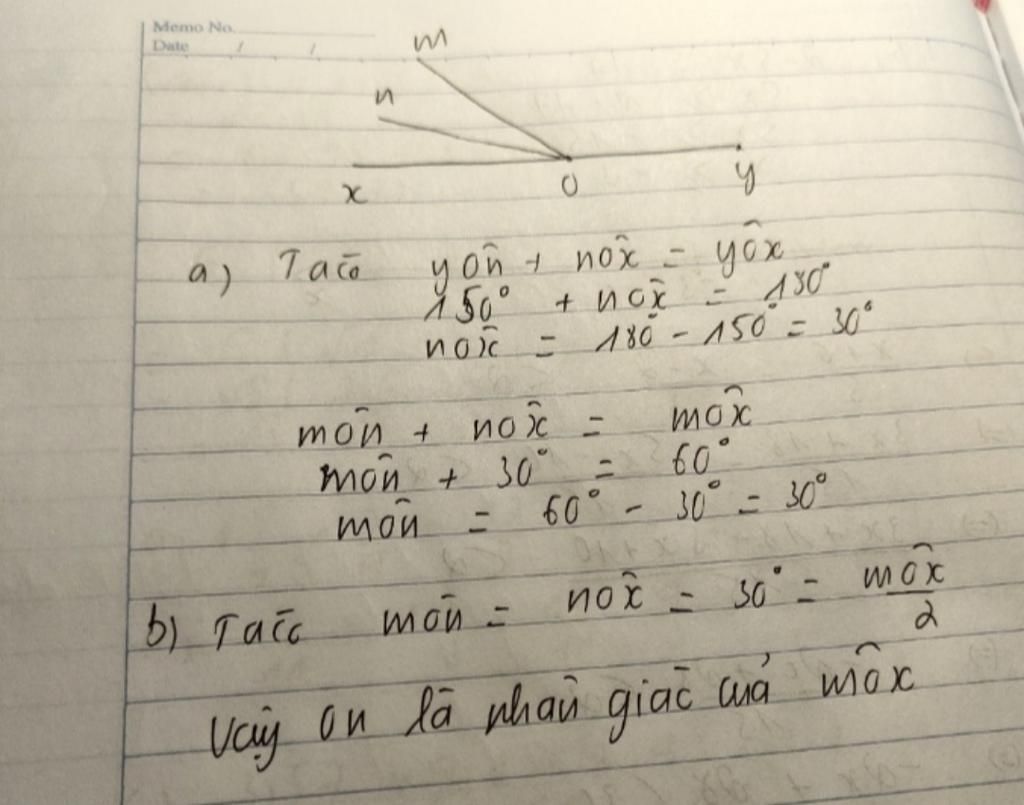 Memo No.
Date / /
m
n
x O y
a) Ta có yôn + nôx = yôx
150° + nôx = 180°
nôx = 180° - 150° = 30°
môn + nôx = môx
môn + 30° = 60°
môn = 60° - 30° = 30°
b) Ta có môn = nôx = 30° = môx/2
Vậy on là phân giác của môx